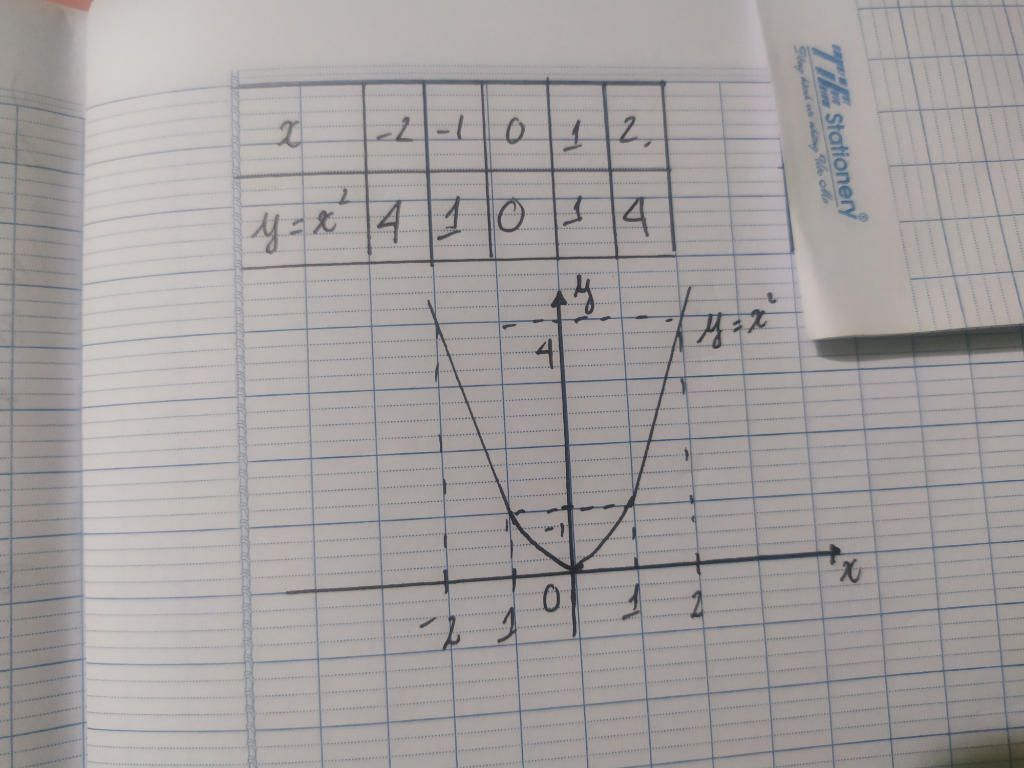 x -2 -1 0 1 2.
y=x² 4 1 0 1 4
TiHi Stationery®
y
4
y=x²
-1
0
x
-2 1 1 2